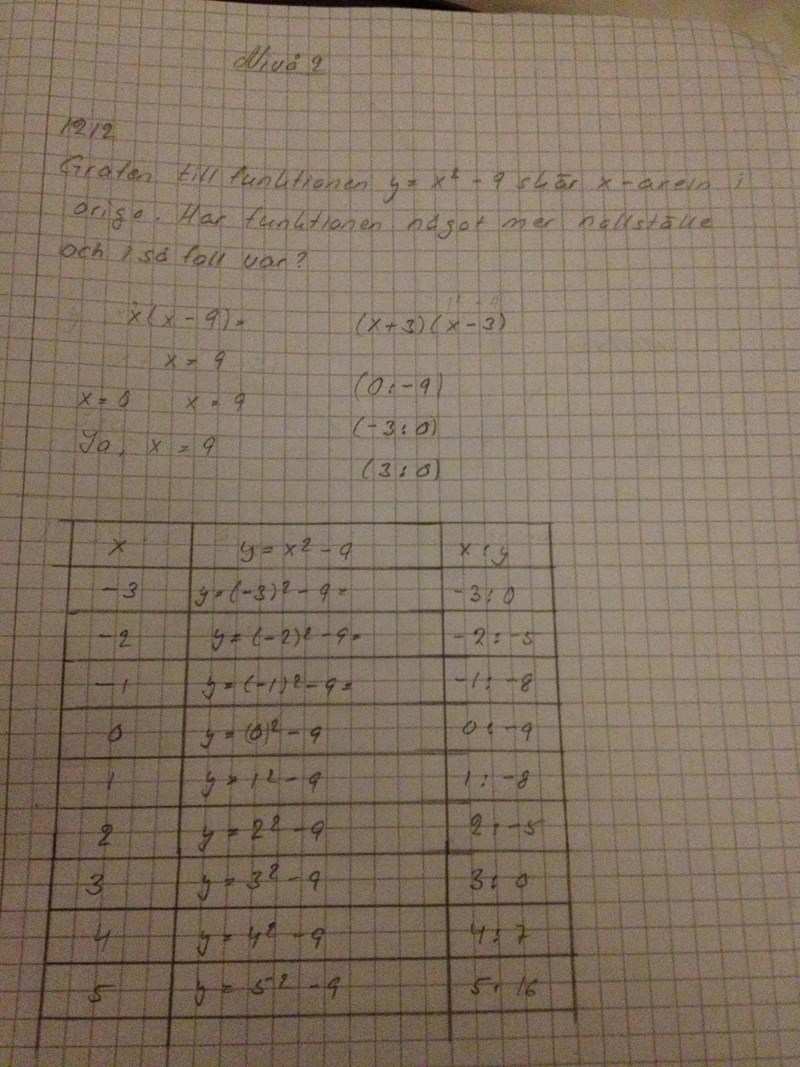 Nivå 2
1212
Grafen till funktionen y = x² - 9 skär x-axeln i
origo. Har funktionen något mer nollställe
och i så fall var?
x(x - 9) = (x+3)(x-3)
x = 9 (0:-9)
x = 0 x = 9 (-3:0)
Ja, x = 9 (3:0)
x y = x² - 9 x:y
-3 y = (-3)² - 9 = -3:0
-2 y = (-2)² - 9 = -2:-5
-1 y = (-1)² - 9 = -1:-8
0 y = (0)² - 9 0:-9
1 y = 1² - 9 1:-8
2 y = 2² - 9 2:-5
3 y = 3² - 9 3:0
4 y = 4² - 9 4:7
5 y = 5² - 9 5:16